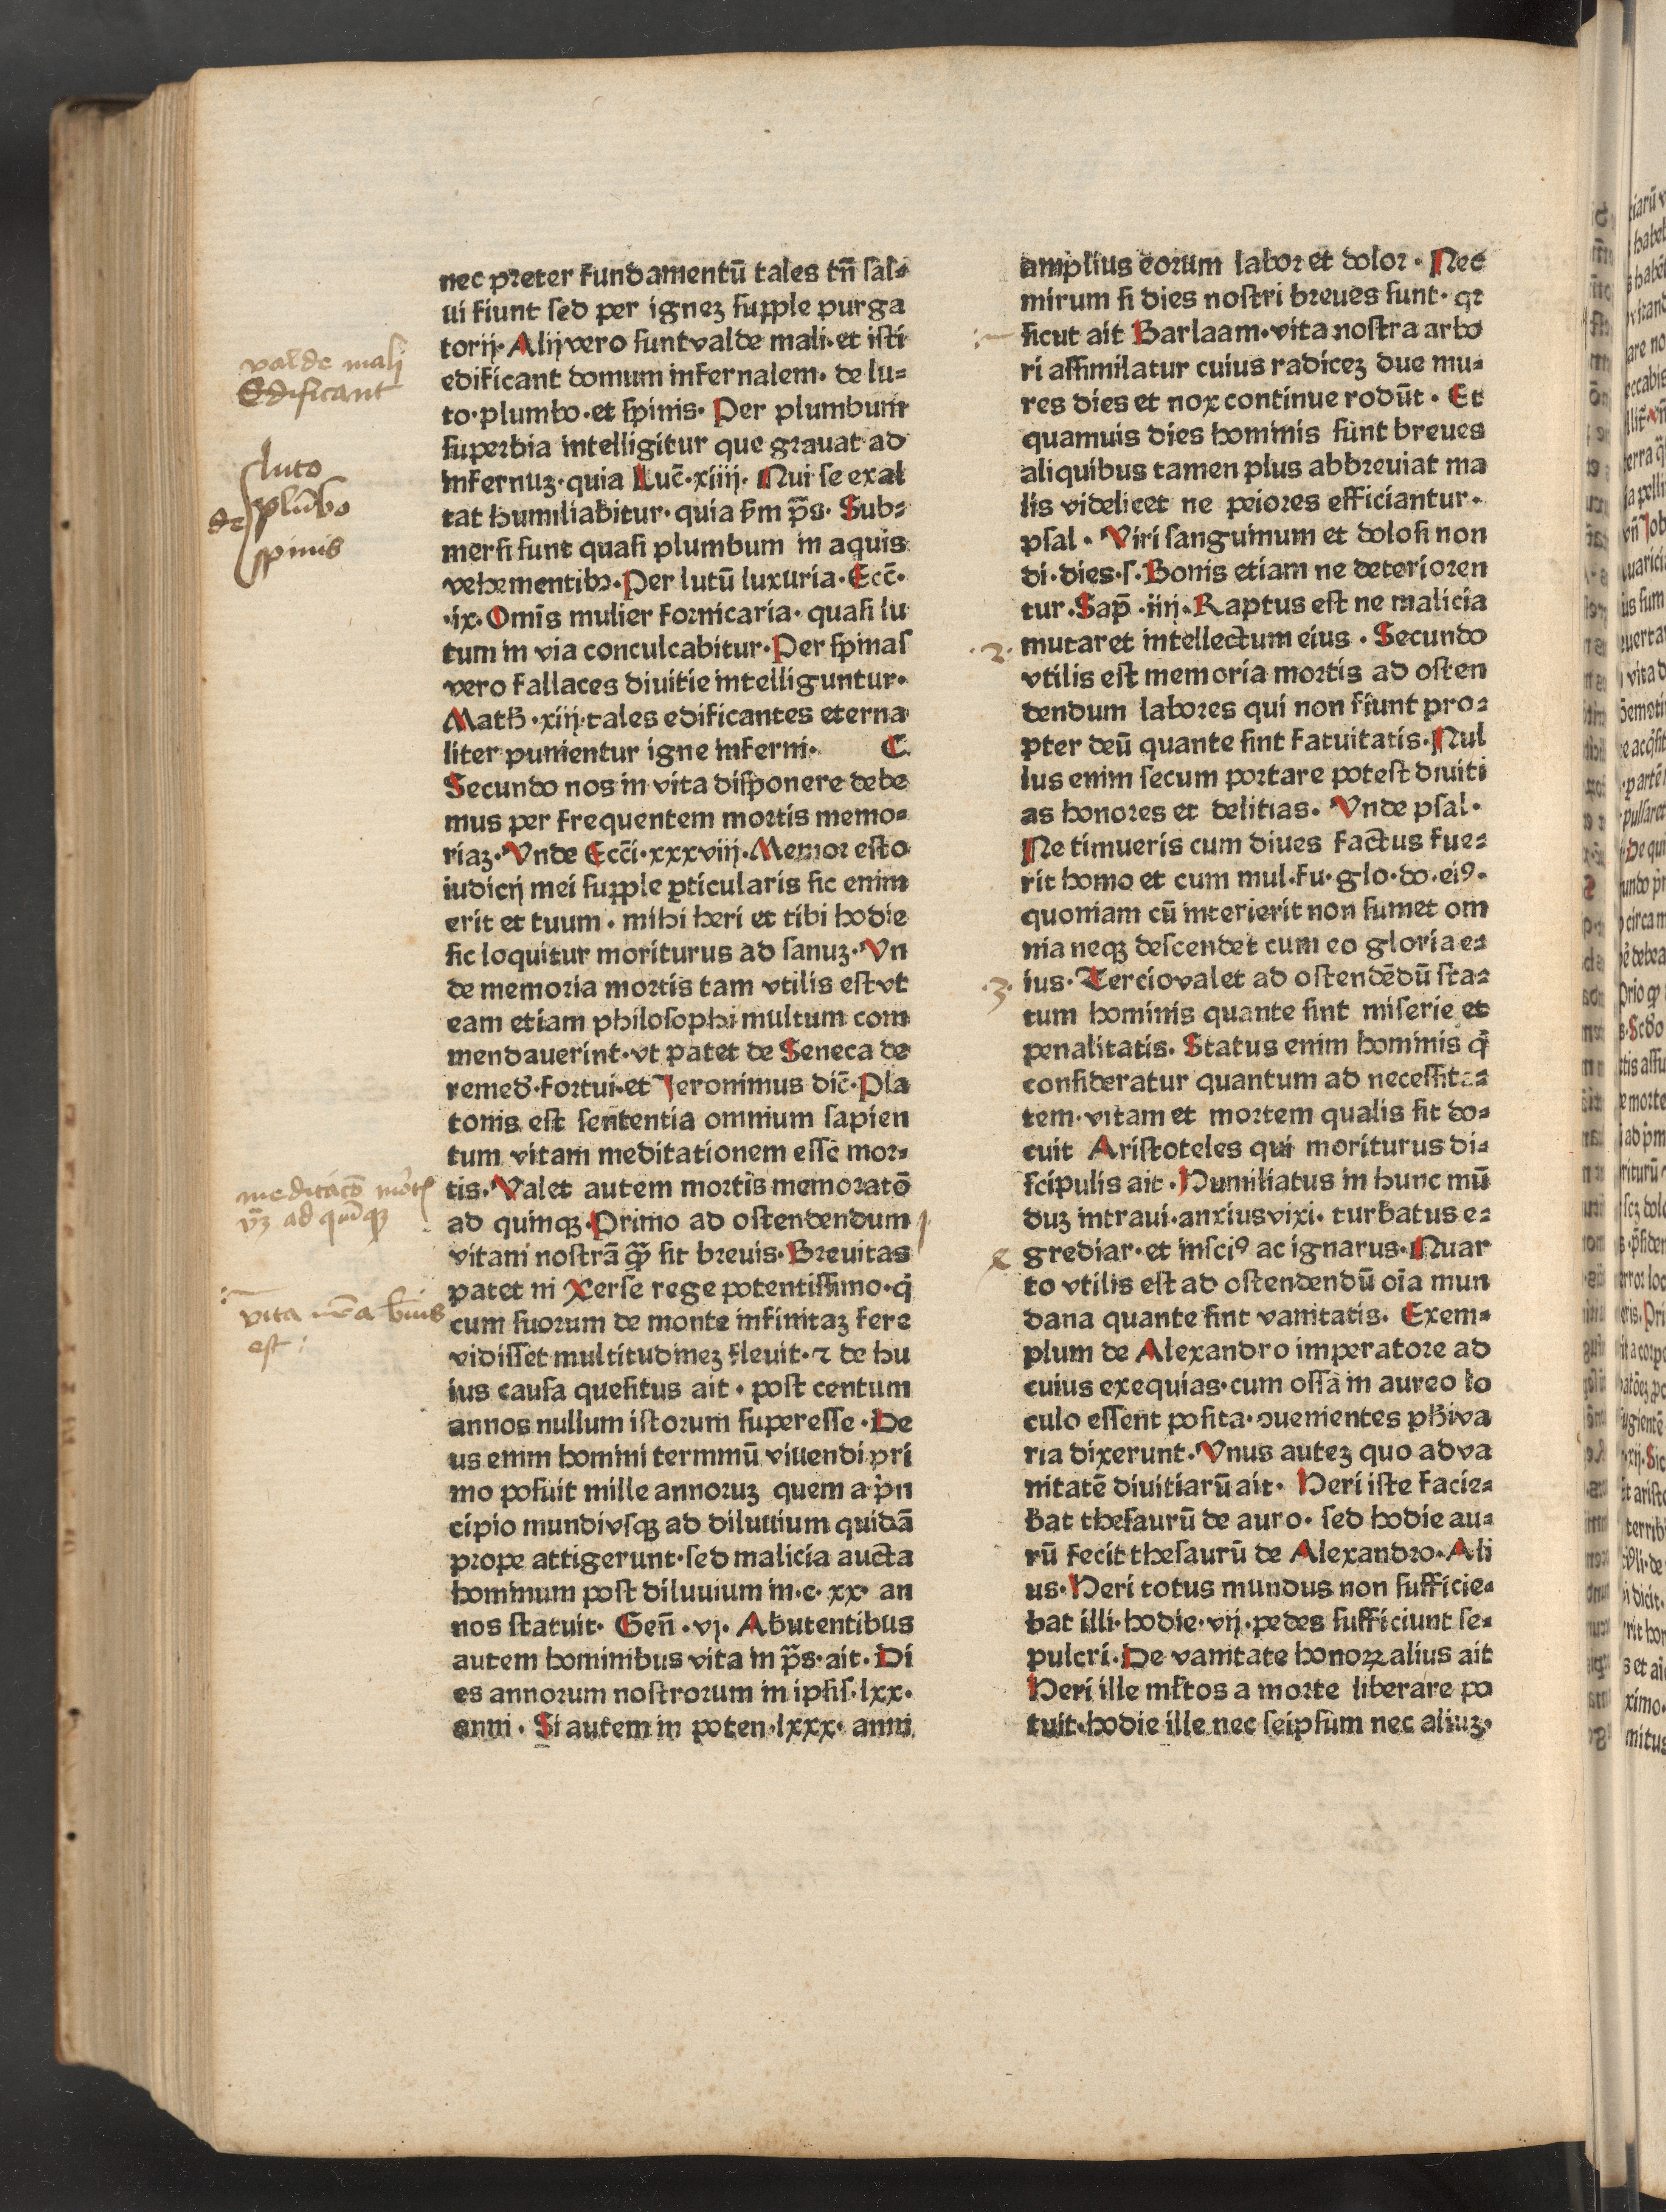 nec preter fundamentū tales tn̄ sal⸗
ui fiunt sed per ignez supple purga
torij· Alij vero sunt valde mali·et isti
edificant domum infernalem· de lu⸗
to·plumbo·et spinis· Per plumbum
superbia intelligitur que grauat ad
infernuz·quia Luc̄·xiiij· Qui se exal
tat humiliabitur·quia ẜm p̄s· Sub⸗
mersi sunt quasi plumbum in aquis
vehementibꝫ·Per lutū luxuria·Ecc̄·
·ix·Omīs mulier fornicaria· quasi lu
tum in via conculcabitur·Per spinas
vero fallaces diuitie intelliguntur·
Math̄·xiij·tales edificantes eterna
liter punientur igne inferni· C
Secundo nos in vita disponere debe
mus per frequentem mortis memo⸗
riaz·Vnde Ecc̄i·xxxviij·Memor esto
iudicij mei supple ꝑticularis sic enim
erit et tuum· mihi heri et tibi hodie
sic loquitur moriturus ad sanuz·Vn
de memoria mortis tam vtilis est vt
eam etiam philosophi multum com
mendauerint·vt patet de Seneca de
remed̄·fortui·et Jeronimus dic̄·Pla
tonis est sententia omnium sapien
tum vitam meditationem esse mor⸗
tis· Valet autem mortis memoratō
ad quinqꝫ·Primo ad ostendendum
vitam nostrā ꝙ̄ sit breuis·Breuitas
patet in Xerse rege potentissimo·q̇
cum suorum de monte infinitaz fere
vidisset multitudinez fleuit·⁊ de hu
ius causa quesitus ait· post centum
annos nullum istorum superesse·De
us enim homini terminū viuendi pri
mo posuit mille annoruz quem a pͥn
cipio mundi vsqꝫ ad diluuium quidā
prope attigerunt·sed malicia aucta
hominum post diluuium in·c·xx· an
nos statuit· Gen̄·vj· Abutentibus
autem hominibus vita in p̄s·ait·Di
es annorum nostrorum in ipsis·lxx·
anni· Si autem in poten·lxxx· anni
amplius eorum labor et dolor· Nec
mirum si dies nostri breues sunt· qꝛ
sicut ait Barlaam·vita nostra arbo
ri assimilatur cuius radicez due mu⸗
res dies et nox continue rodūt· Et
quamuis dies hominis sunt breues
aliquibus tamen plus abbreuiat ma
lis videlicet ne peiores efficiantur·
psal· Viri sanguinum et dolosi non
di·dies·s·Bonis etiam ne deterioren
tur·Sap̄·iiij·Raptus est ne malicia
mutaret intellectum eius· Secundo
vtilis est memoria mortis ad osten
dendum labores qui non fiunt pro⸗
pter deū quante sint fatuitatis·Nul
lus enim secum portare potest diuiti
as honores et delitias· Vnde psal·
Ne timueris cum diues factus fue⸗
rit homo et cum mul·fu·glo·do·eiꝰ·
quoniam cū interierit non sumet om
nia neqꝫ descendet cum eo gloria e⸗
ius·Tercio valet ad ostendēdū sta⸗
tum hominis quante sint miserie et
penalitatis· Status enim hominis q̇
consideratur quantum ad necessita⸗
tem·vitam et mortem qualis sit do⸗
cuit Aristoteles qui moriturus di⸗
scipulis ait·Humiliatus in hunc mū
duz intraui·anxius vixi· turbatus e⸗
grediar·et insciꝰ ac ignarus·Quar
to vtilis est ad ostendendū oīa mun
dana quante sint vanitatis· Exem⸗
plum de Alexandro imperatore ad
cuius exequias·cum ossa in aureo lo
culo essent posita·ↄuenientes phi va
ria dixerunt·Vnus autez quo ad va
nitatē diuitiarū ait· Heri iste facie⸗
bat thesaurū de auro· sed hodie au⸗
rū fecit thesaurū de Alexandro·Ali
us·Heri totus mundus non sufficie⸗
bat illi·hodie·vij·pedes sufficiunt se⸗
pulcri·De vanitate honoꝝ alius ait
Heri ille ml̄tos a morte liberare po
tuit·hodie ille nec seipsum nec aliuz·
valde malj
Edificant
de
luto
plūbo
spinis
meditacō mort̄
vꝫ ad quīqꝫ
vita nr̄a breuis
est
1
·2·
·3·